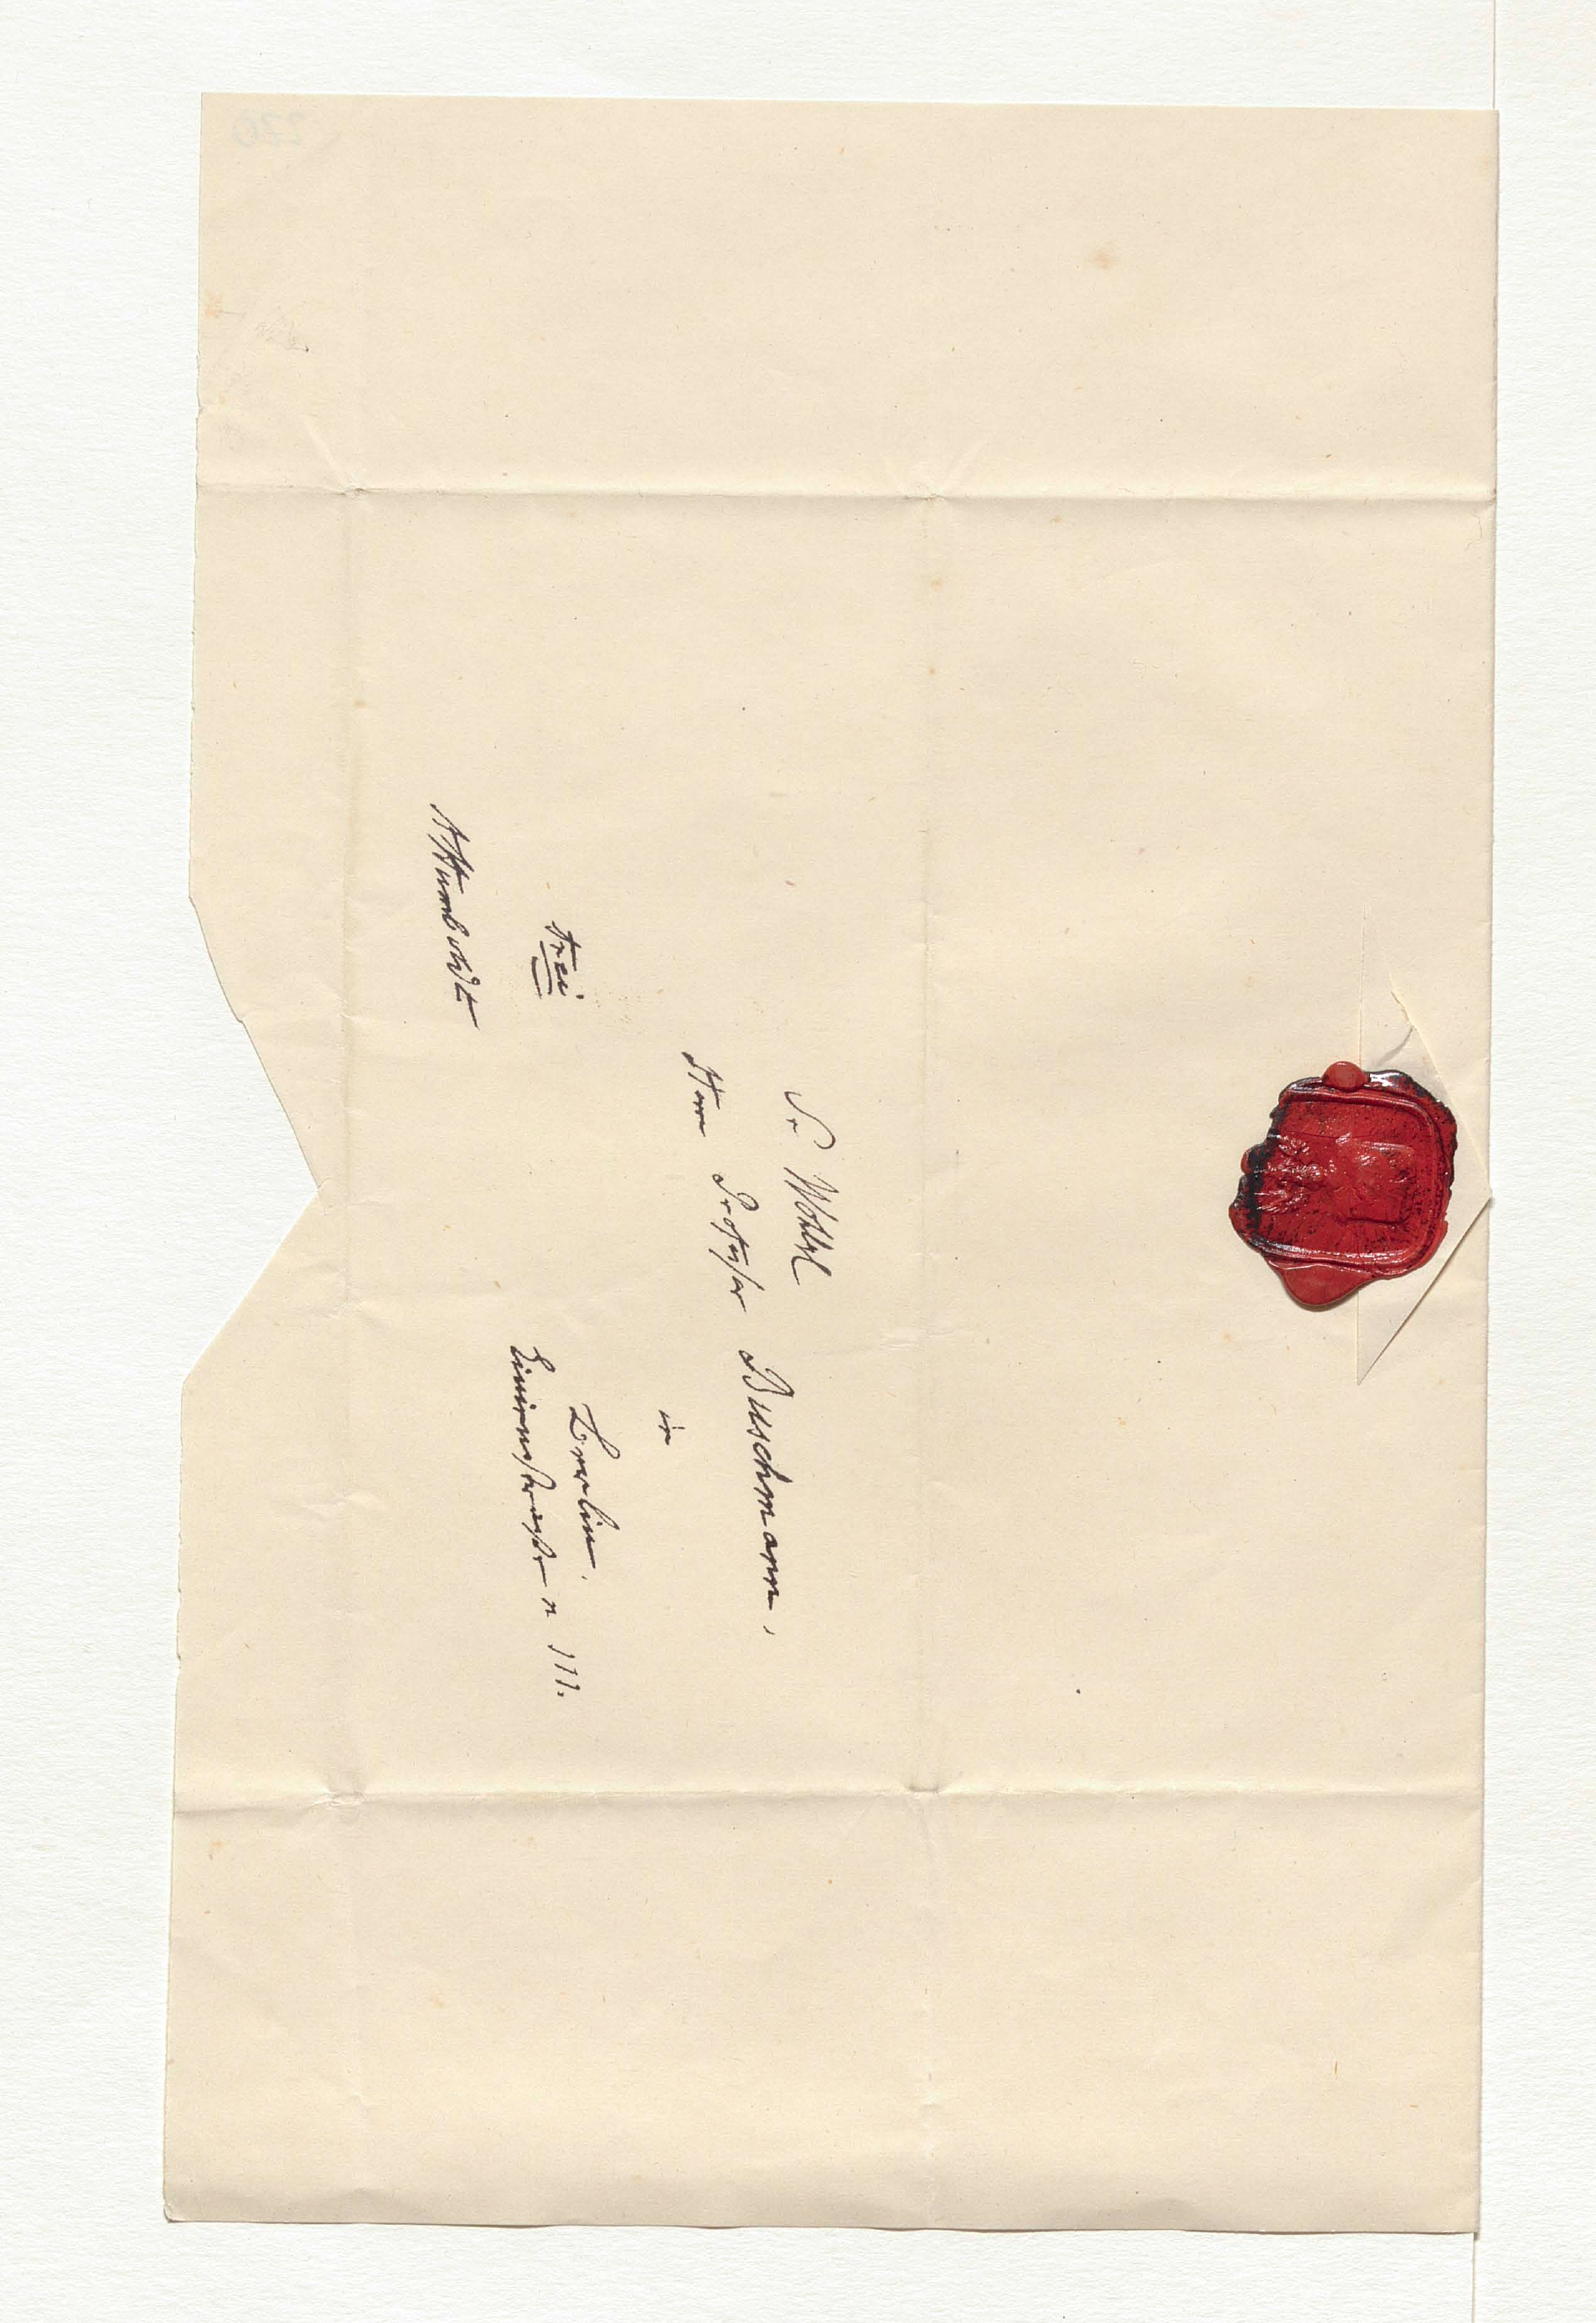 Sr Wohlgl
Herrn Professor Buschmann,
in
Berlin.
Linienstraße n 111.
frei
AHumboldt